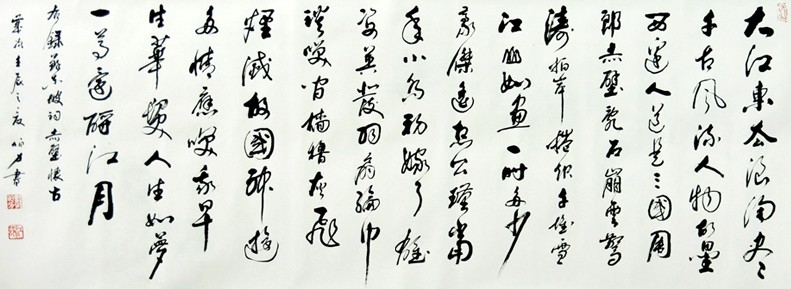 大江東去浪淘尽
千古風流人物故壘
西邊人道是三國周
郎赤壁亂石崩雲驚
濤拍岸捲起千堆雪
江山如畫一時多少
豪傑遙想公瑾當
年小喬初嫁了雄
姿英發羽扇綸巾
談笑間檣櫓灰飛
煙滅故國神遊
多情應笑我早
生華髮人生如夢
一尊還酹江月
右錄蘇東坡詞赤壁懷古
壬辰之夏 書